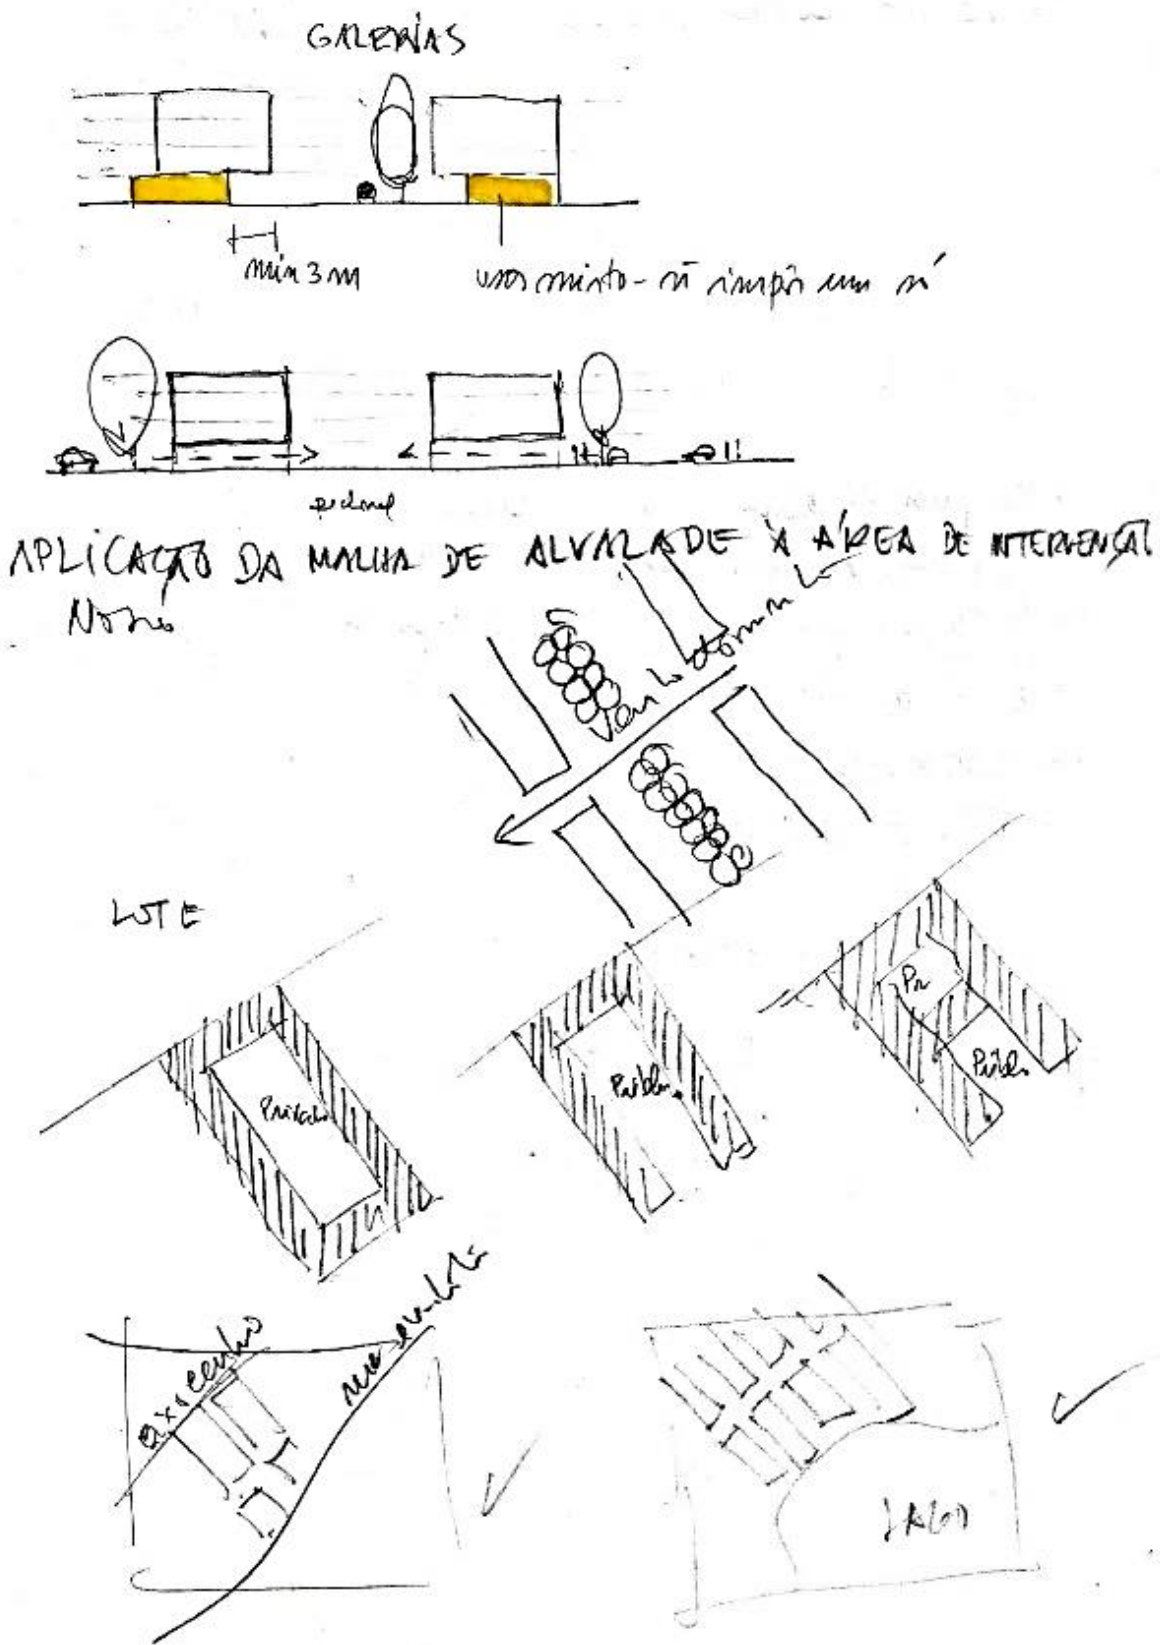 GALERIAS
min 3 m
usos misto - ñ impôr um só
pedonal
APLICAÇÃO DA MALHA DE ALVALADE À ÁREA DE INTERVENÇÃO
vento dominante
LOTE
Privado
Público
Pr
Público
eixo
rua
LAGO